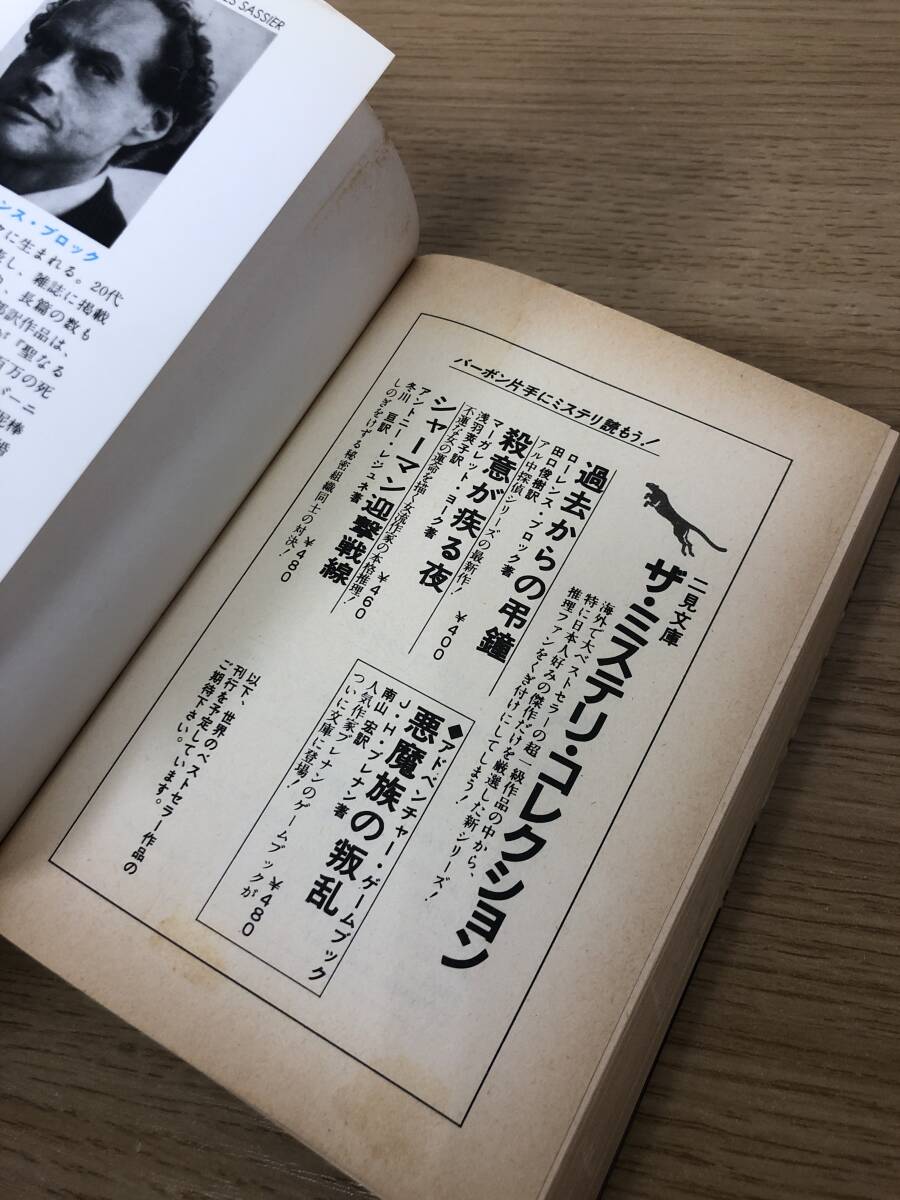 ES SASSIER
ンス・ブロック
に生まれる。20代
表し、雑誌に掲載
、長篇の数も
邦訳作品は、
が『聖なる
百万の死
バーニ
泥棒
バーボン片手にミステリ読もう!
二見文庫
ザ・ミステリ・コレクション
海外で大ベストセラーの超一級作品の中から、
特に日本人好みの傑作だけを厳選した新シリーズ!
推理ファンをくぎ付けにしてしまう!
過去からの弔鐘
ローレンス・ブロック著
田口俊樹訳
アル中探偵シリーズの最新作! ¥400
殺意が疾る夜
マーガレット・ヨーク著
浅羽莢子訳
不運な女の運命を描く女流作家の本格推理! ¥460
シャーマン迎撃戦線
アントニー・レジュネ著
冬川 亘訳
しのぎをけずる秘密組織同士の対決! ¥480
◆アドベンチャー・ゲームブック
悪魔族の叛乱
J・H・ブレナン著
南山 宏訳
人気作家ブレナンのゲームブックが
ついに文庫に登場! ¥480
以下、世界のベストセラー作品の
刊行を予定しています。
ご期待下さい。